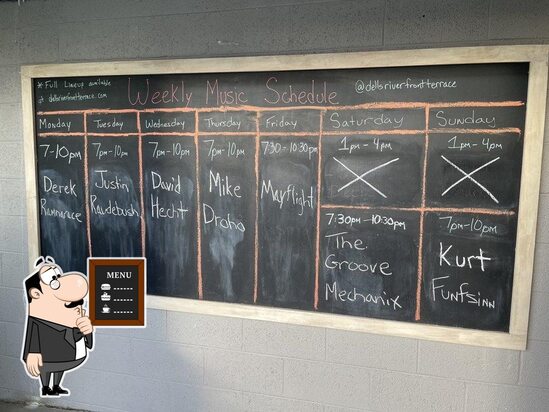 * Full Lineup available
@ dellsriverfrontterrace.com
Weekly Music Schedule
@dellsriverfrontterrace
Monday
Tuesday
Wednesday
Thursday
Friday
Saturday
Sunday
7-10pm
7pm-10pm
7pm-10pm
7pm-10pm
7:30-10:30pm
1pm-4pm
1pm-4pm
Derek
Ramnarace
Justin
Raudebush
David
Hecht
Mike
Droho
Mayflight
7:30pm-10:30pm
The
Groove
Mechanix
7pm-10pm
Kurt
Funfsinn
MENU